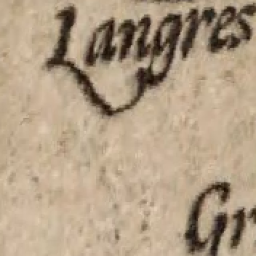 Langres
Gr